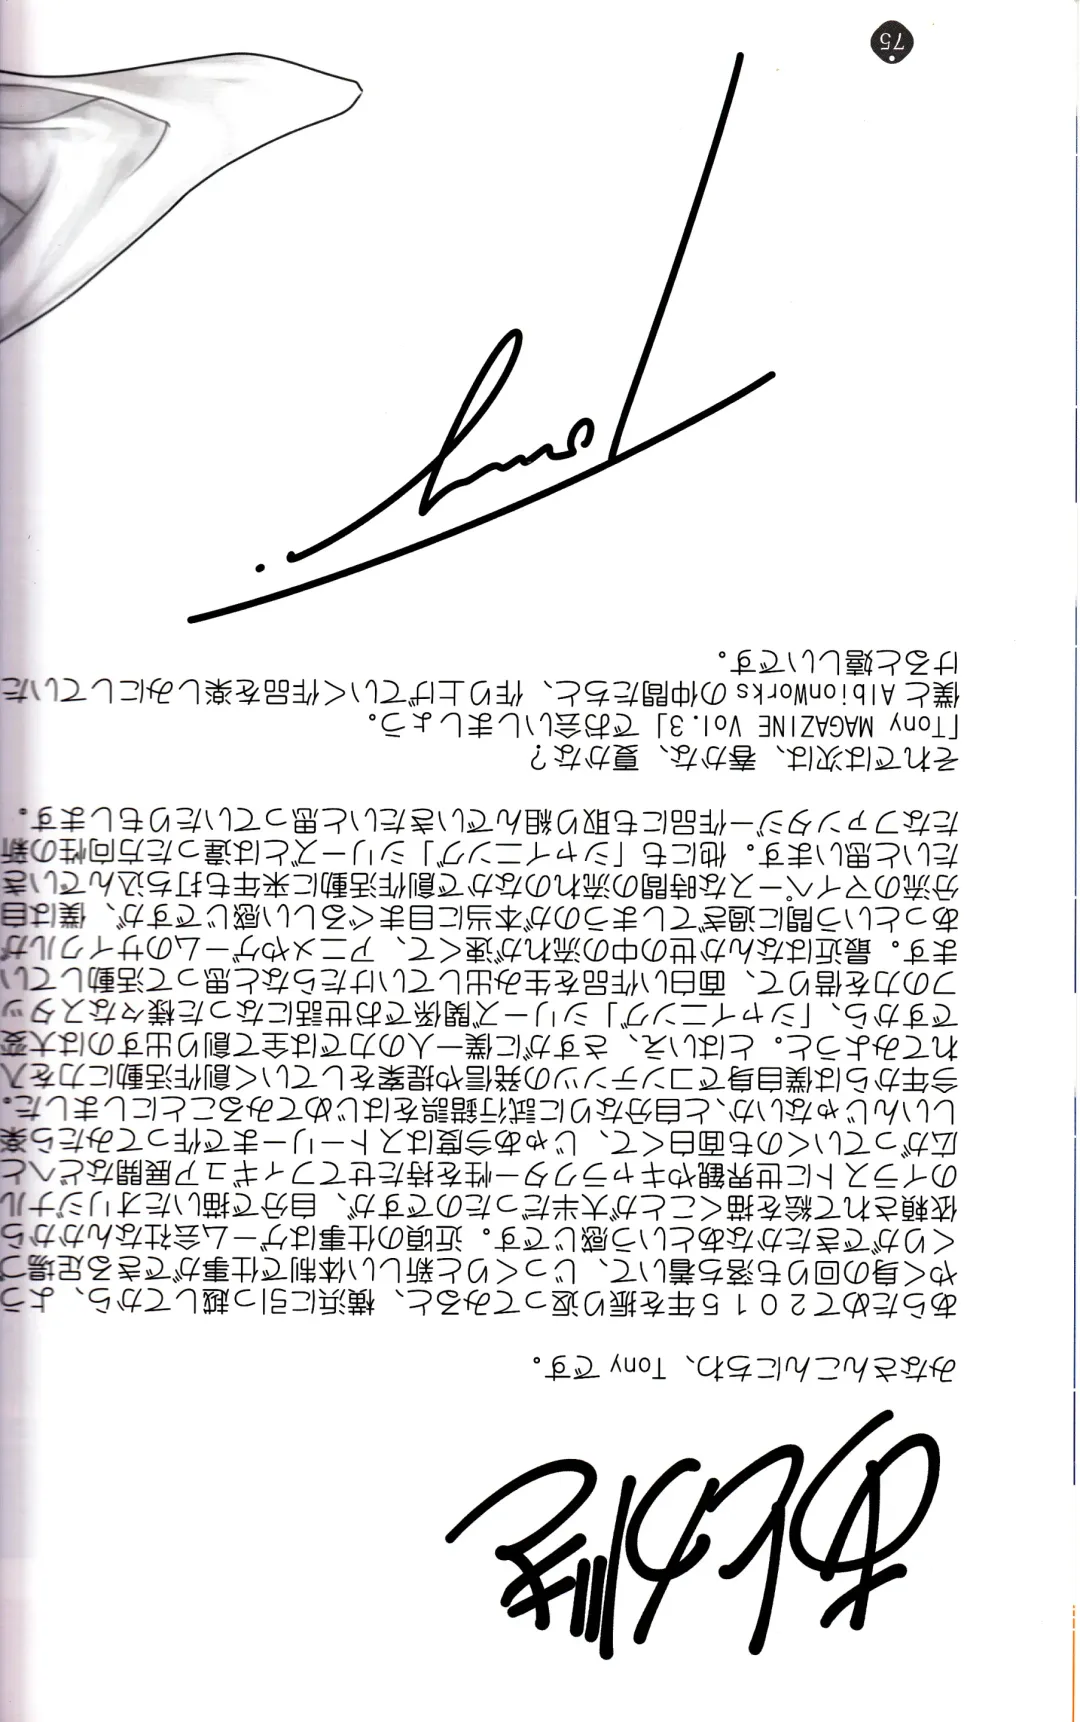 あとがき
みなさんこんにちわ、Tonyです。
あらためて２０１５年を振り返ってみると、横浜に引っ越してから、よう
やく身の回りも落ち着いて、じっくりと新しい体制で仕事ができる足場づ
くりができたかなあという感じです。近頃の仕事はゲーム会社なんかから
依頼されて絵を描くことが大半だったのですが、自分で描いたオリジナル
のイラストに世界観やキャラクター性を持たせてフィギュア展開などへと
広がっていくのも面白くて、じゃあ今度はストーリーまで作ってみたら楽
しいんじゃないか、と自分なりに試行錯誤をはじめてみることにしました。
今年からは僕自身でコンテンツの発信や提案をしていく創作活動に力を入
れてみようと。とはいえ、さすがに僕一人の力では全て創り出すのは大変
ですから、「シャイニング」シリーズ関係でお世話になった様々なスタッ
フの力を借りて、面白い作品を生み出していけたらなと思って活動してい
ます。最近はなんか世の中の流れが速くて、アニメやゲームのサイクルが
あっという間に過ぎてしまうのが本当に目まぐるしい感じですが、僕は自
分流のマイペースな時間の流れのなかで創作活動に来年も打ち込んでいき
たいと思います。他にも「シャイニング」シリーズとは違った方向性の新
たなファンタジー作品にも取り組んでいきたいと思っていたりもします。
それでは次は、春かな、夏かな？
「Tony MAGAZINE Vol.3」でお会いしましょう。
僕と AlbionWorks の仲間たちと、作り上げていく作品を楽しみにしていた
けると嬉しいです。
Tony
75